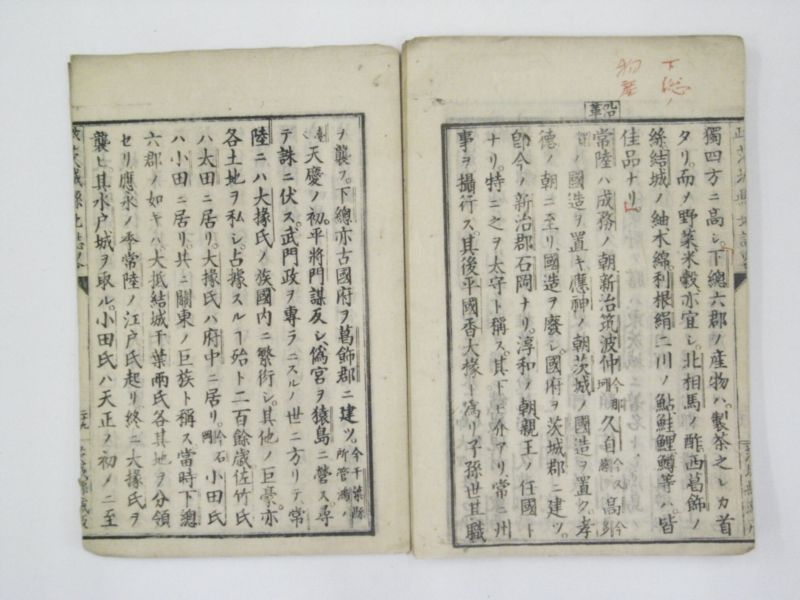 下總
物産
沿革
獨四方ニ高シ。下總六郡ノ産物ハ。製茶之レカ首
タリ。而メ野菜米穀亦宜シ。北相馬ノ酢西葛飾ノ
絲結城ノ紬木綿。利根絹二川ノ鮎鮭鯉鱒等ハ。皆
佳品ナリ」
常陸ハ成務ノ朝。新治筑波仲
久自
高
ノ國造ヲ置キ應神ノ朝茨城ノ國造ヲ置ク。孝
德ノ朝ニ至リ。國造ヲ廢シ。國府ヲ茨城郡ニ建ツ。
卽今ノ新治郡石岡ナリ。淳和ノ朝親王ノ任國ト
ナリ。特ニ之ヲ太守ト稱ス。其下ニ介アリ常ニ州
事ヲ攝行ス。其後平國香大掾ト爲リ子孫世其職
ヲ襲フ。下總亦古國府ヲ葛飾郡ニ建ツ。今千葉縣所管鴻ノ
臺
天慶ノ初。平將門謀反シ。僞宮ヲ猿島ニ營ス。尋
テ誅ニ伏ス。武門政ヲ專ラニスルノ世ニ方リテ。常
陸ニハ大掾氏ノ族國内ニ繁衍シ。其他ノ巨豪亦
各土地ヲ私シ。占據スルヿ殆ト二百餘歲佐竹氏
ハ太田ニ居リ。大掾氏ハ府中ニ居リ。今石岡
小田氏
ハ小田ニ居リ。共ニ關東ノ巨族ト稱ス當時下總
六郡ノ如キハ大抵結城千葉兩氏各其地ヲ分領
セリ應永ノ季常陸ノ江戸氏起リ終ニ大掾氏ヲ
襲ヒ其水戸城ヲ取ル。小田氏ハ天正ノ初ノニ至
茨城縣地誌略